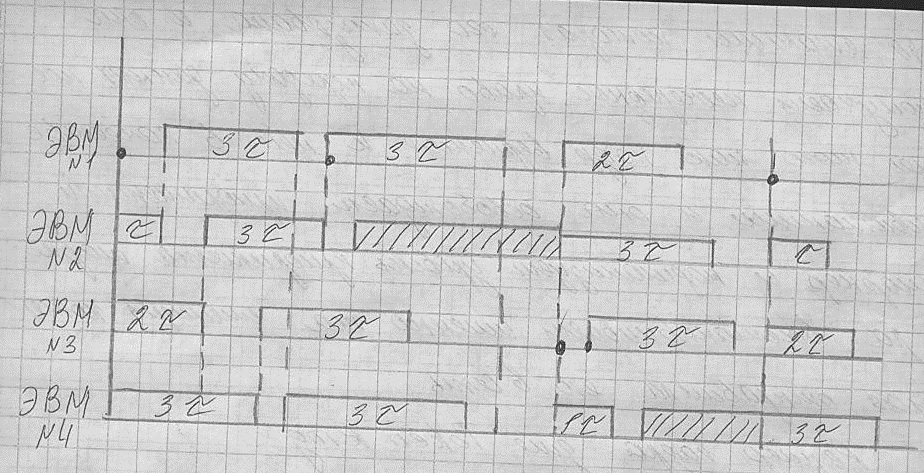 ЭВМ N1 3τ 3τ 2τ
ЭВМ N2 τ 3τ 3τ τ
ЭВМ N3 2τ 3τ 3τ 2τ
ЭВМ N4 3τ 3τ 1τ 3τ